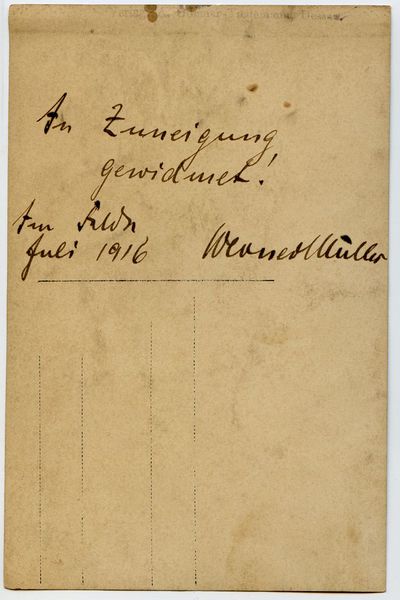 In Zuneigung
gewidmet!
Im Felde
Juli 1916 Werner Müller